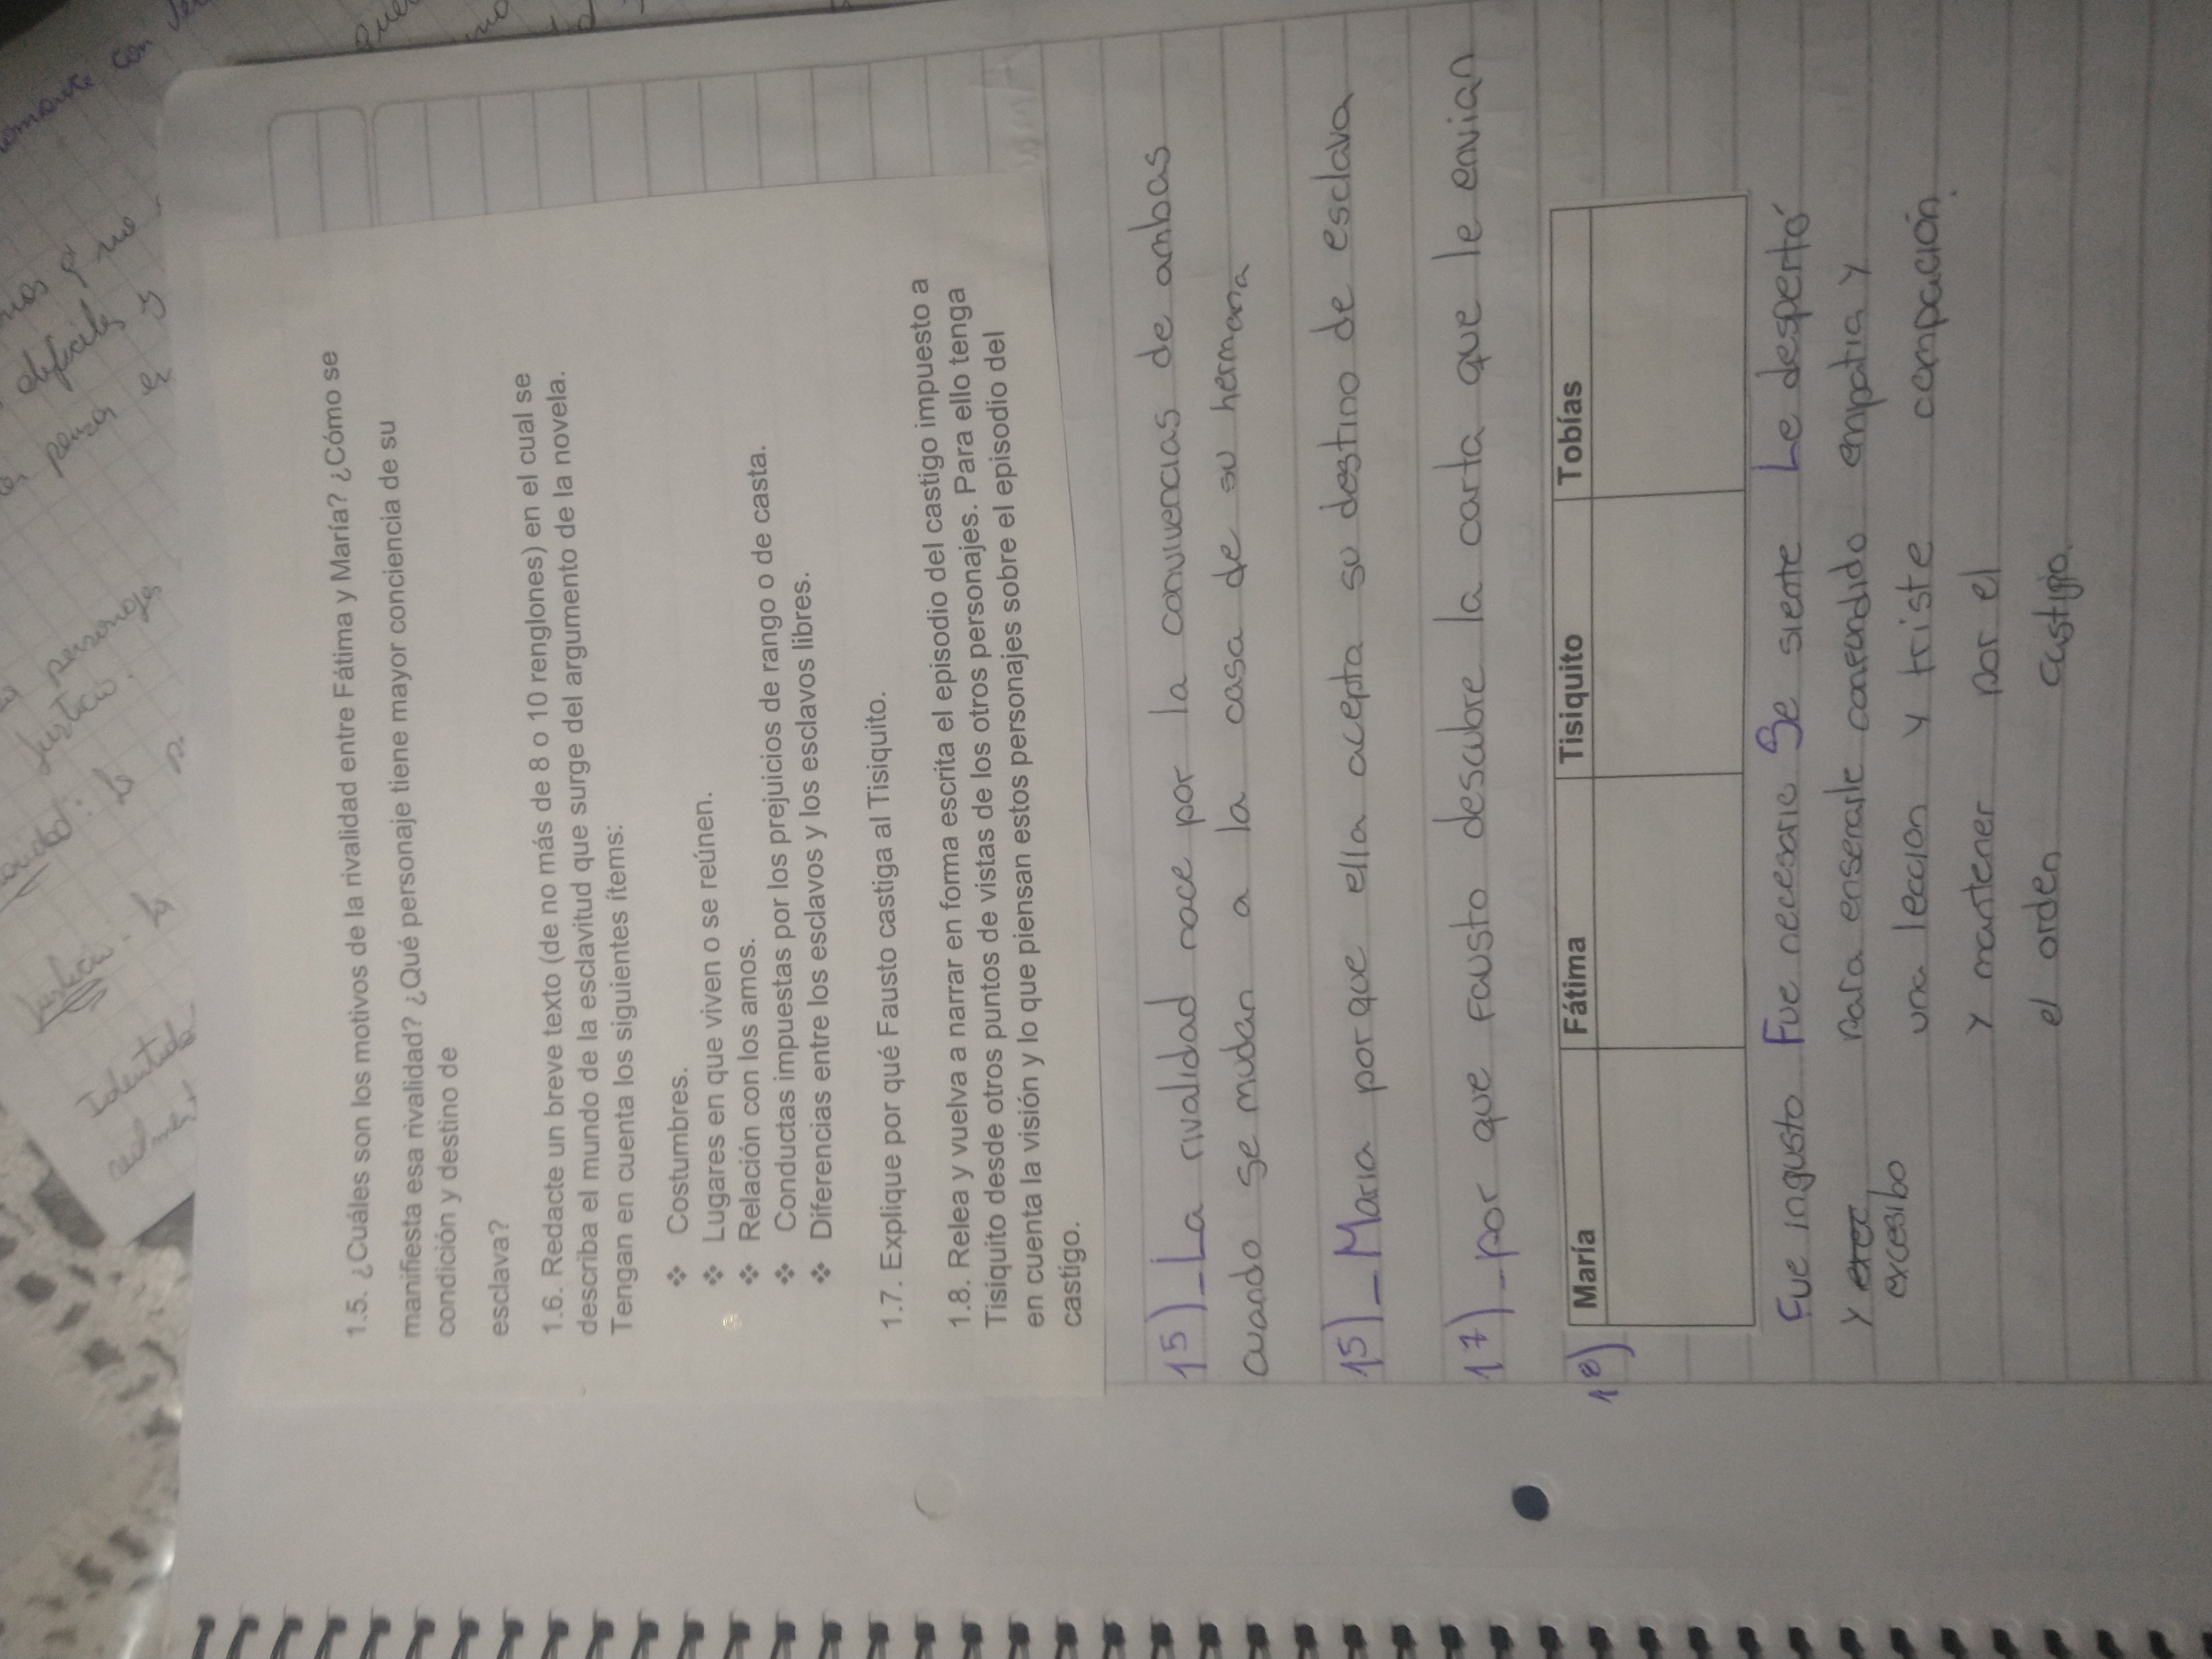 1.5. ¿Cuáles son los motivos de la rivalidad entre Fátima y María? ¿Cómo se
manifiesta esa rivalidad? ¿Qué personaje tiene mayor conciencia de su
condición y destino de
esclava?
1.6. Redacte un breve texto (de no más de 8 o 10 renglones) en el cual se
describa el mundo de la esclavitud que surge del argumento de la novela.
Tengan en cuenta los siguientes ítems:
❖ Costumbres.
❖ Lugares en que viven o se reúnen.
❖ Relación con los amos.
❖ Conductas impuestas por los prejuicios de rango o de casta.
❖ Diferencias entre los esclavos y los esclavos libres.
1.7. Explique por qué Fausto castiga al Tisiquito.
1.8. Relea y vuelva a narrar en forma escrita el episodio del castigo impuesto a
Tisiquito desde otros puntos de vistas de los otros personajes. Para ello tenga
en cuenta la visión y lo que piensan estos personajes sobre el episodio del
castigo.
15)_ La rivalidad nace por la convivencias de ambas
cuando se mudan a la casa de su hermana
15)_ Maria porque ella acepta su destino de esclava
17)_ por que Fausto descubre la carta que le envian
18)
María Fátima Tisiquito Tobías
Fue ingusto Fue necesario Se siente Le despertó
y para enserarle confendido empatia y
excesibo una leccion y triste compación.
y mantener por el
el orden castigo.